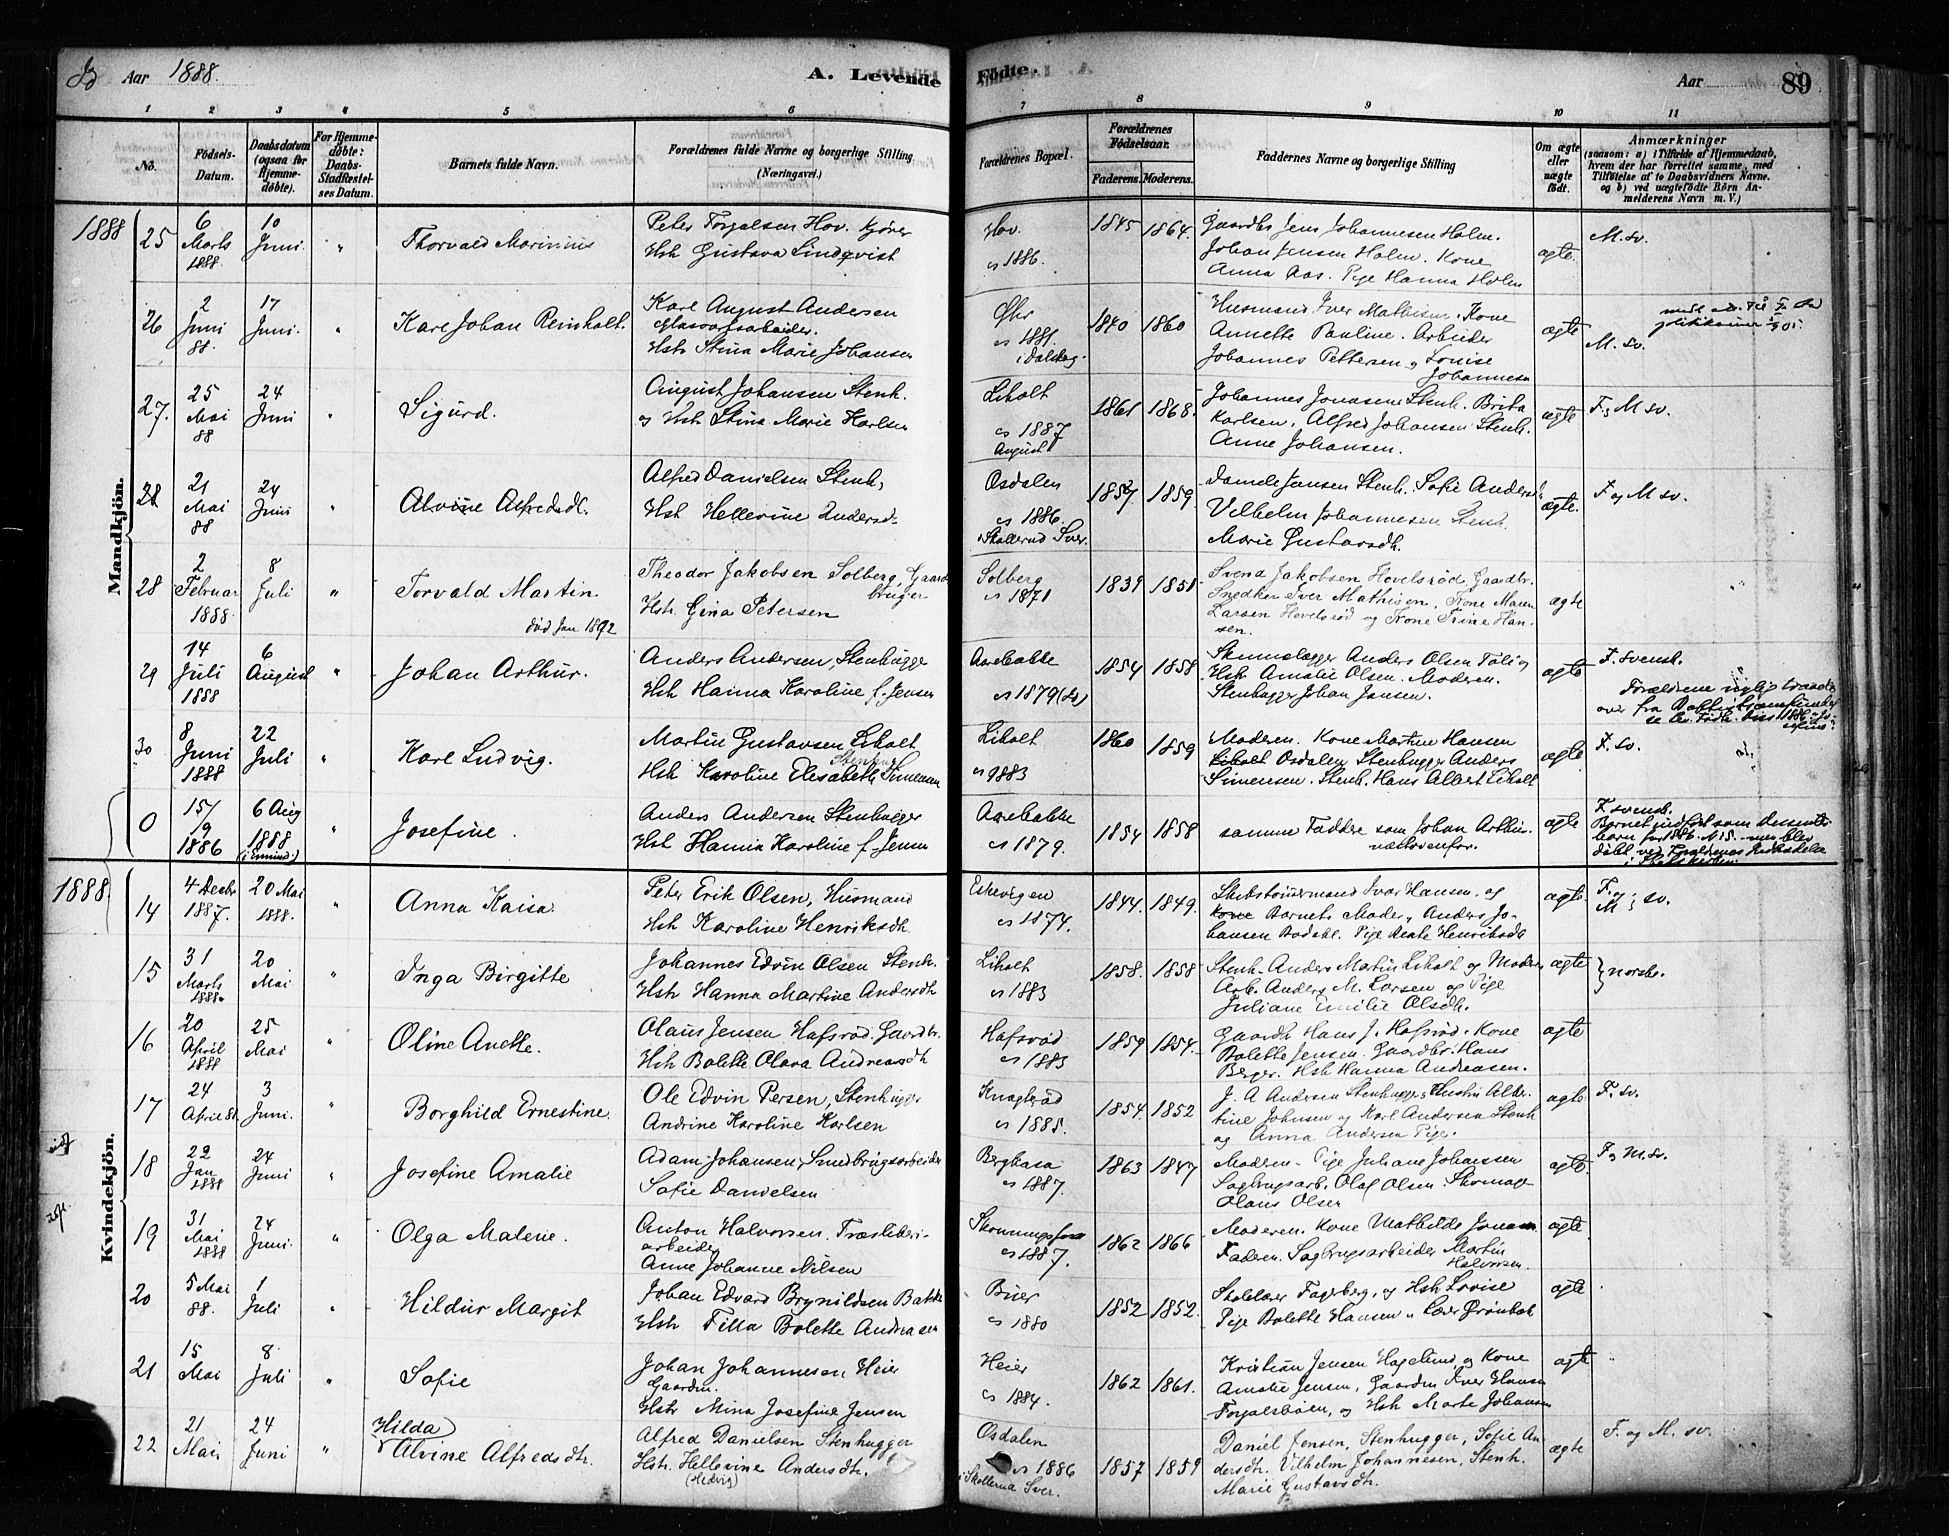 Id Aar 1888. A. Levende Fødte. Aar 89
1 2 3 4 5 6 7 8 9 10 11
No. Fødsels-Datum. Daabsdatum (ogsaa for Hjemme-døbte). For Hjemme-døbte: Daabs-Stadfæstel-ses Datum. Barnets fulde Navn. Forældrenes fulde Navne og borgerlige Stilling (Næringsvei.) Forældrenes Bopæl. Forældrenes Fødselsaar. Faderens. Moderens. Faddernes Navne og borgerlige Stilling Om ægte eller uægte født. Anmærkninger (saasom: a) i Tilfælde af Hjemmedaab, hvem der har forrettet samme, med Tilføielse af to Daabsvidners Navne, og b) ved uægtefødte Børn An-melderens Navn m. V.)
Mandkjön.
1888 25 6 Marts 1888. 10 Juni. " Thorvald Marinius
Peter Torgalsen Hov. Kjører
Hst. Gustava Lindqvist
Hov. cs 1886. 1845 1864.
Gaardbr Jens Johannesen Holm.
Johan Jensen Holm. Kone
Anna Aas. Pige Hanna Holm
ægte. M. sv.
26 2 Juni 88. 17 Juni. " Karl Johan Reinholt.
Karl August Andersen
Hstr Stina Marie Johansen
cs 1881. i Dalskog. 1840 1860
Husmand Iver Mathisen. Kone
Annette Pauline. Arbeider
Johannes Pettersen og Lovise
Johannesen
ægte M. sv.
27. 25 Mai 88 24 Juni " Sigurd.
August Johansen Stenh.
og Hst Stina Marie Karlsen
Liholt cs 1887 August 1861 1868.
Johannes Jonasen Stenh. Brita
Karlsen, Alfred Johansen Stenh.
Anne Johansen.
ægte F. og M sv.
28 21 Mai 88 24 Juni " Alvine Alfredsdt.
Alfred Danielsen Stenh,
Hst Hellevine Andersd-
Osdalen cs 1886. i Skallerud Sver. 1857 1859.
Daniel Jansen Stenh. Sofie Andersd.
Vilhelm Johannesen Stenh
Marie Gustavsdh.
ægte. F. og M sv.
28 2 Februar 1888. 8 Juli " Torvald Martin.
død Jan 1892
Theodor Jakobsen Solberg, Gaard
bruger
Hst. Gina Petersen
Solberg cs 1871 1839 1851
Svend Jakobsen Hovelsrød Gaardbr.
Snedker Iver Mathisen, Kone Maren
Larsen Hovelsrød og Kone Trine Han-
sen.
ægte
29 14 Juli 1888 6 August " Johan Arthur.
Anders Andersen, Stenhugger
Hst Hanna Karoline f. Jensen
Aarebakke cs 1879 1854 1858
Anders Olsen
Hst. Amalie Olsen. Moderen.
Stenhugger Johan Jansen.
ægte F. svensk.
Forældrene nylig traadte
over fra
30 8 Juni 1888 22 Juli " Karl Ludvig.
Martin Gustavsen Liholt
Stenhug
Hst Karoline Elisabeth Simensen
Liholt cs 1883 1860 1859
Moderen. Kone Marthea Hansen
Liholt Osdalen Stenhugger Anders
Simensen. Stenh. Hans Albert Liholt
ægte F. sv.
0 15/9 1886 6 Aug 1888 " Josefine.
Anders Andersen Stenhugger
Hst Hanna Karoline f. Jensen
Aarebakke cs 1879. 1854 1858
samme Faddere som Johan Arthur
næstovenfor.
ægte F. svensk.
Barnet indført som
barn for 1886. No 5. men blev
døbt ved Forældrenes Indtrædelse
i Statskirken
Kvindekjön.
1888. 14 4 Decbr 1887. 20 Mai 1888. " Anna Kaisa.
Peter Erik Olsen, Husmand
Hst Karoline Henriksdh.
Eskevigen cs 1874. 1844. 1849.
Ivar Hansen, og
Kone Barnets Moder, Anders Jo-
hansen Pige Beate Henriksdt
ægte. F. og M ; sv.
15 31 Marts 1888. 20 Mai " Inga Birgitte
Johannes Edvin Olsen Stenh.
Hst Hanna Martine Andersdh
Liholt cs 1883 1858. 1858
Stenh. Anders Martin Liholt og Moder
Arb. Anders M. Larsen og Pige
Juliane Emilie Olsdh.
ægte } norsk.
16 20 April 1888 25 Mai " Oline Anette.
Olaus Jensen Hafsrød Gaardbr.
Hst Bolette Olava Andreasdh
Hafsrød cs 1883 1859 1854.
Gaardb Hans J. Hafsrød. Kone
Bolette Jensen. Gaardbr. Hans
Berger. Hst Hanna Andreasen.
ægte
17 24 April 88 3 Juni. " Borghild Ernestine.
Ole Edvin Persen, Stenhugger
Andrine Karoline Karlsen
cs 1885. 1854 1852
J. A Andersen Stenhugger, Hustru Alber-
tine Johnsen og Karl Andersen Stenh
og Anna Andersen Pige.
ægte F. sv.
18 22 Jan 1888 24 Juni " Josefine Amalie
Adam Johansen, Smedbrugsarbeider
Sofie Danielsen
Bergkasa cs 1887. 1863 1847
Moderen. Pige Juliane Johansen
Sagbrugsarb. Olaf Olsen. Skomag
Olaus Olsen
ægte. F og M. sv.
19 31 Mai 1888 24 Juni. " Olga Malene.
Anton Halvorsen. Træsliberi-
arbeider
Anne Johanne Nilsen
cs 1887. 1862 1866
Moderen. Kone Mathilde Jonasen
Faderen. Sagbrugsarbeider Martin
Halvorsen.
ægte
20 5 Mai 88. 1 Juli " Hildur Margit
Johan Edvard Brynildsen Bakke
Hst Tilla Bolette Andreasen
Buer cs 1880 1852 1852.
Skolelærer Fagerberg, og Hst Lovise
Pige Bolette Hansen " Lærer Grønbek
ægte
21 15 Mai 8 Juli " Sofie
Johan Johannesen Heier
Gaardm.
Hst Mina Josefine Jensen
Heier cs 1884. 1862 1861.
Kristian Jensen Hagelund, og Kone
Amalie Jensen, Gaardm Iver Hansen
Torgalsbøen, og Hst Marte Johansen
ægte
22 21 Mai 24 Juni " Hilda
Alvine Alfredsdtr.
Alfred Danielsen Stenhugger
Hst. Hellevine Andersdtr.
(Hedvig)
Osdalen cs 1886 i Skallerud Sver. 1857 1859
Daniel Jensen, Stenhugger, Sofie An
dersdtr. Vilhelm Johannesen, Stenh.
Marie Gustavsdtr.
ægte F. og M. sv.